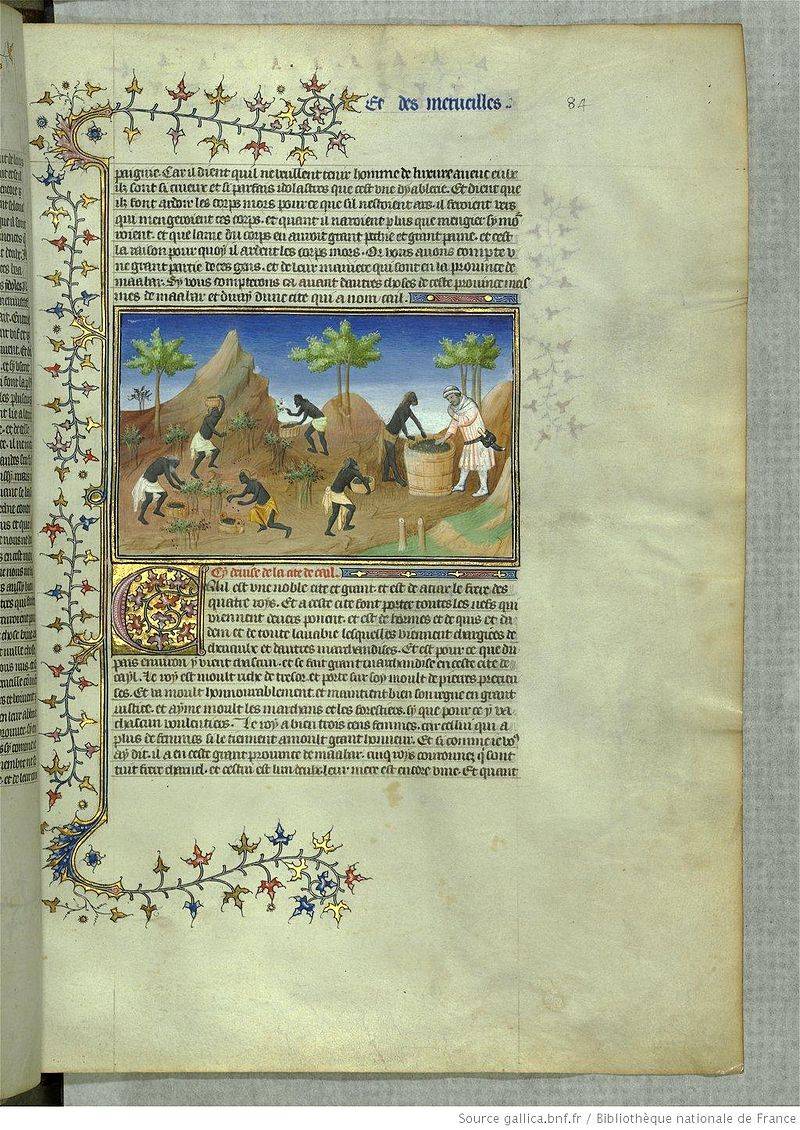 Et des merueilles.
84
paigne. Car il dient quil ne veullent tenir homme de luxure auent eulx
ilz sont si crueux et si parfais ydolastres que cest vne dyablerie. Et dient que
ilz font ardoir les corps mors pour ce que sil nestoient ars. il seroient vers
qui mengeroient ces corps. et quant il naroient plus que mengier sy mor
roient. et que lame du corps en auroit grant pechie et grant paine. et cest
la raison pour quoy il ardent les corps mors. Or vous auons compte v
ne grant partie de ces gens. et de leur maniere qui sont en la prouince de
maabar. Sy vous compterons cy auant dautres choses de ceste prouince mas
mes de maabar et diray dune cite qui a nom cail.
Cy deuise de la cite de cail.
Cail est vne noble cite et grant. et est de atiar le frere des
quatre roys. Et a ceste cite font porter toutes les nefs qui
viennent deuers ponent. et est de hormes et de quis et da
dem et de toute larabie lesquelles viennent chargees de
cheuaulx et dautres marchandises. Et est pour ce que du
pais enuiron y vient chascun. et se fait grant marchandise en ceste cite de
cayl. Le roy est moult riche de tresor. et porte sur soy moult de pierres precieu
ses. Et va moult honnourablement. et maintient bien son regne en grant
iustice. et ayme moult les marchans et les forestiers. sy que pour ce y va
chascun voulentiers. Le roy a bien trois cens femmes. car cellui qui a
plus de femmes si le tiennent a moult grant honneur. Et si comme ie vous
ay dit. il a en ceste grant prouince de maabar. cinq roys couronnez qui sont
tuit frere charnel. et cestui est lun deulx. leur mere est encore viue. Et quant
Source gallica.bnf.fr / Bibliothèque nationale de France